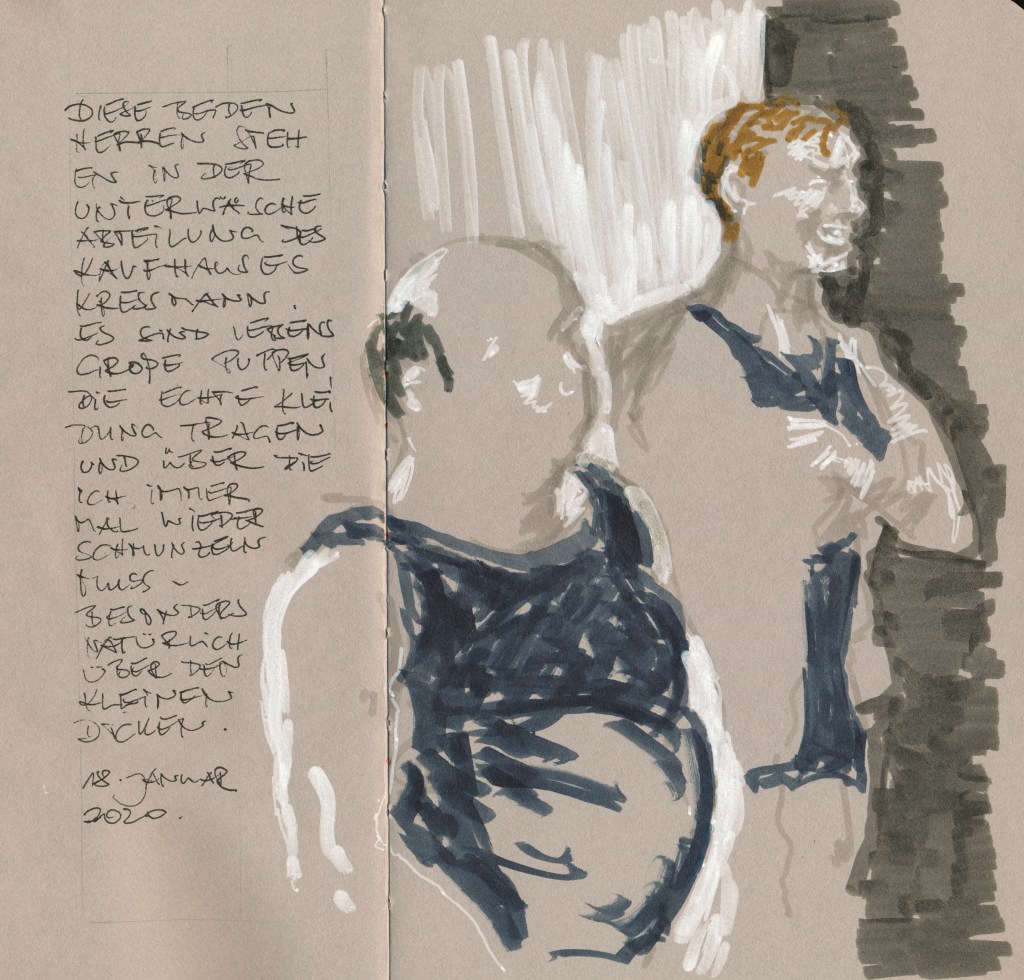 DIESE BEIDEN
HERREN STEH
EN IN DER
UNTERWÄSCHE
ABTEILUNG DES
KAUFHAUSES
KRESSMANN.
ES SIND LEBENS
GROßE PUPPEN,
DIE ECHTE KLEI
DUNG TRAGEN
UND ÜBER DIE
ICH IMMER
MAL WIEDER
SCHMUNZELN
MUSS ~
BESONDERS
NATÜRLICH
ÜBER DEN
KLEINEN
DICKEN.
18. JANUAR
2020.